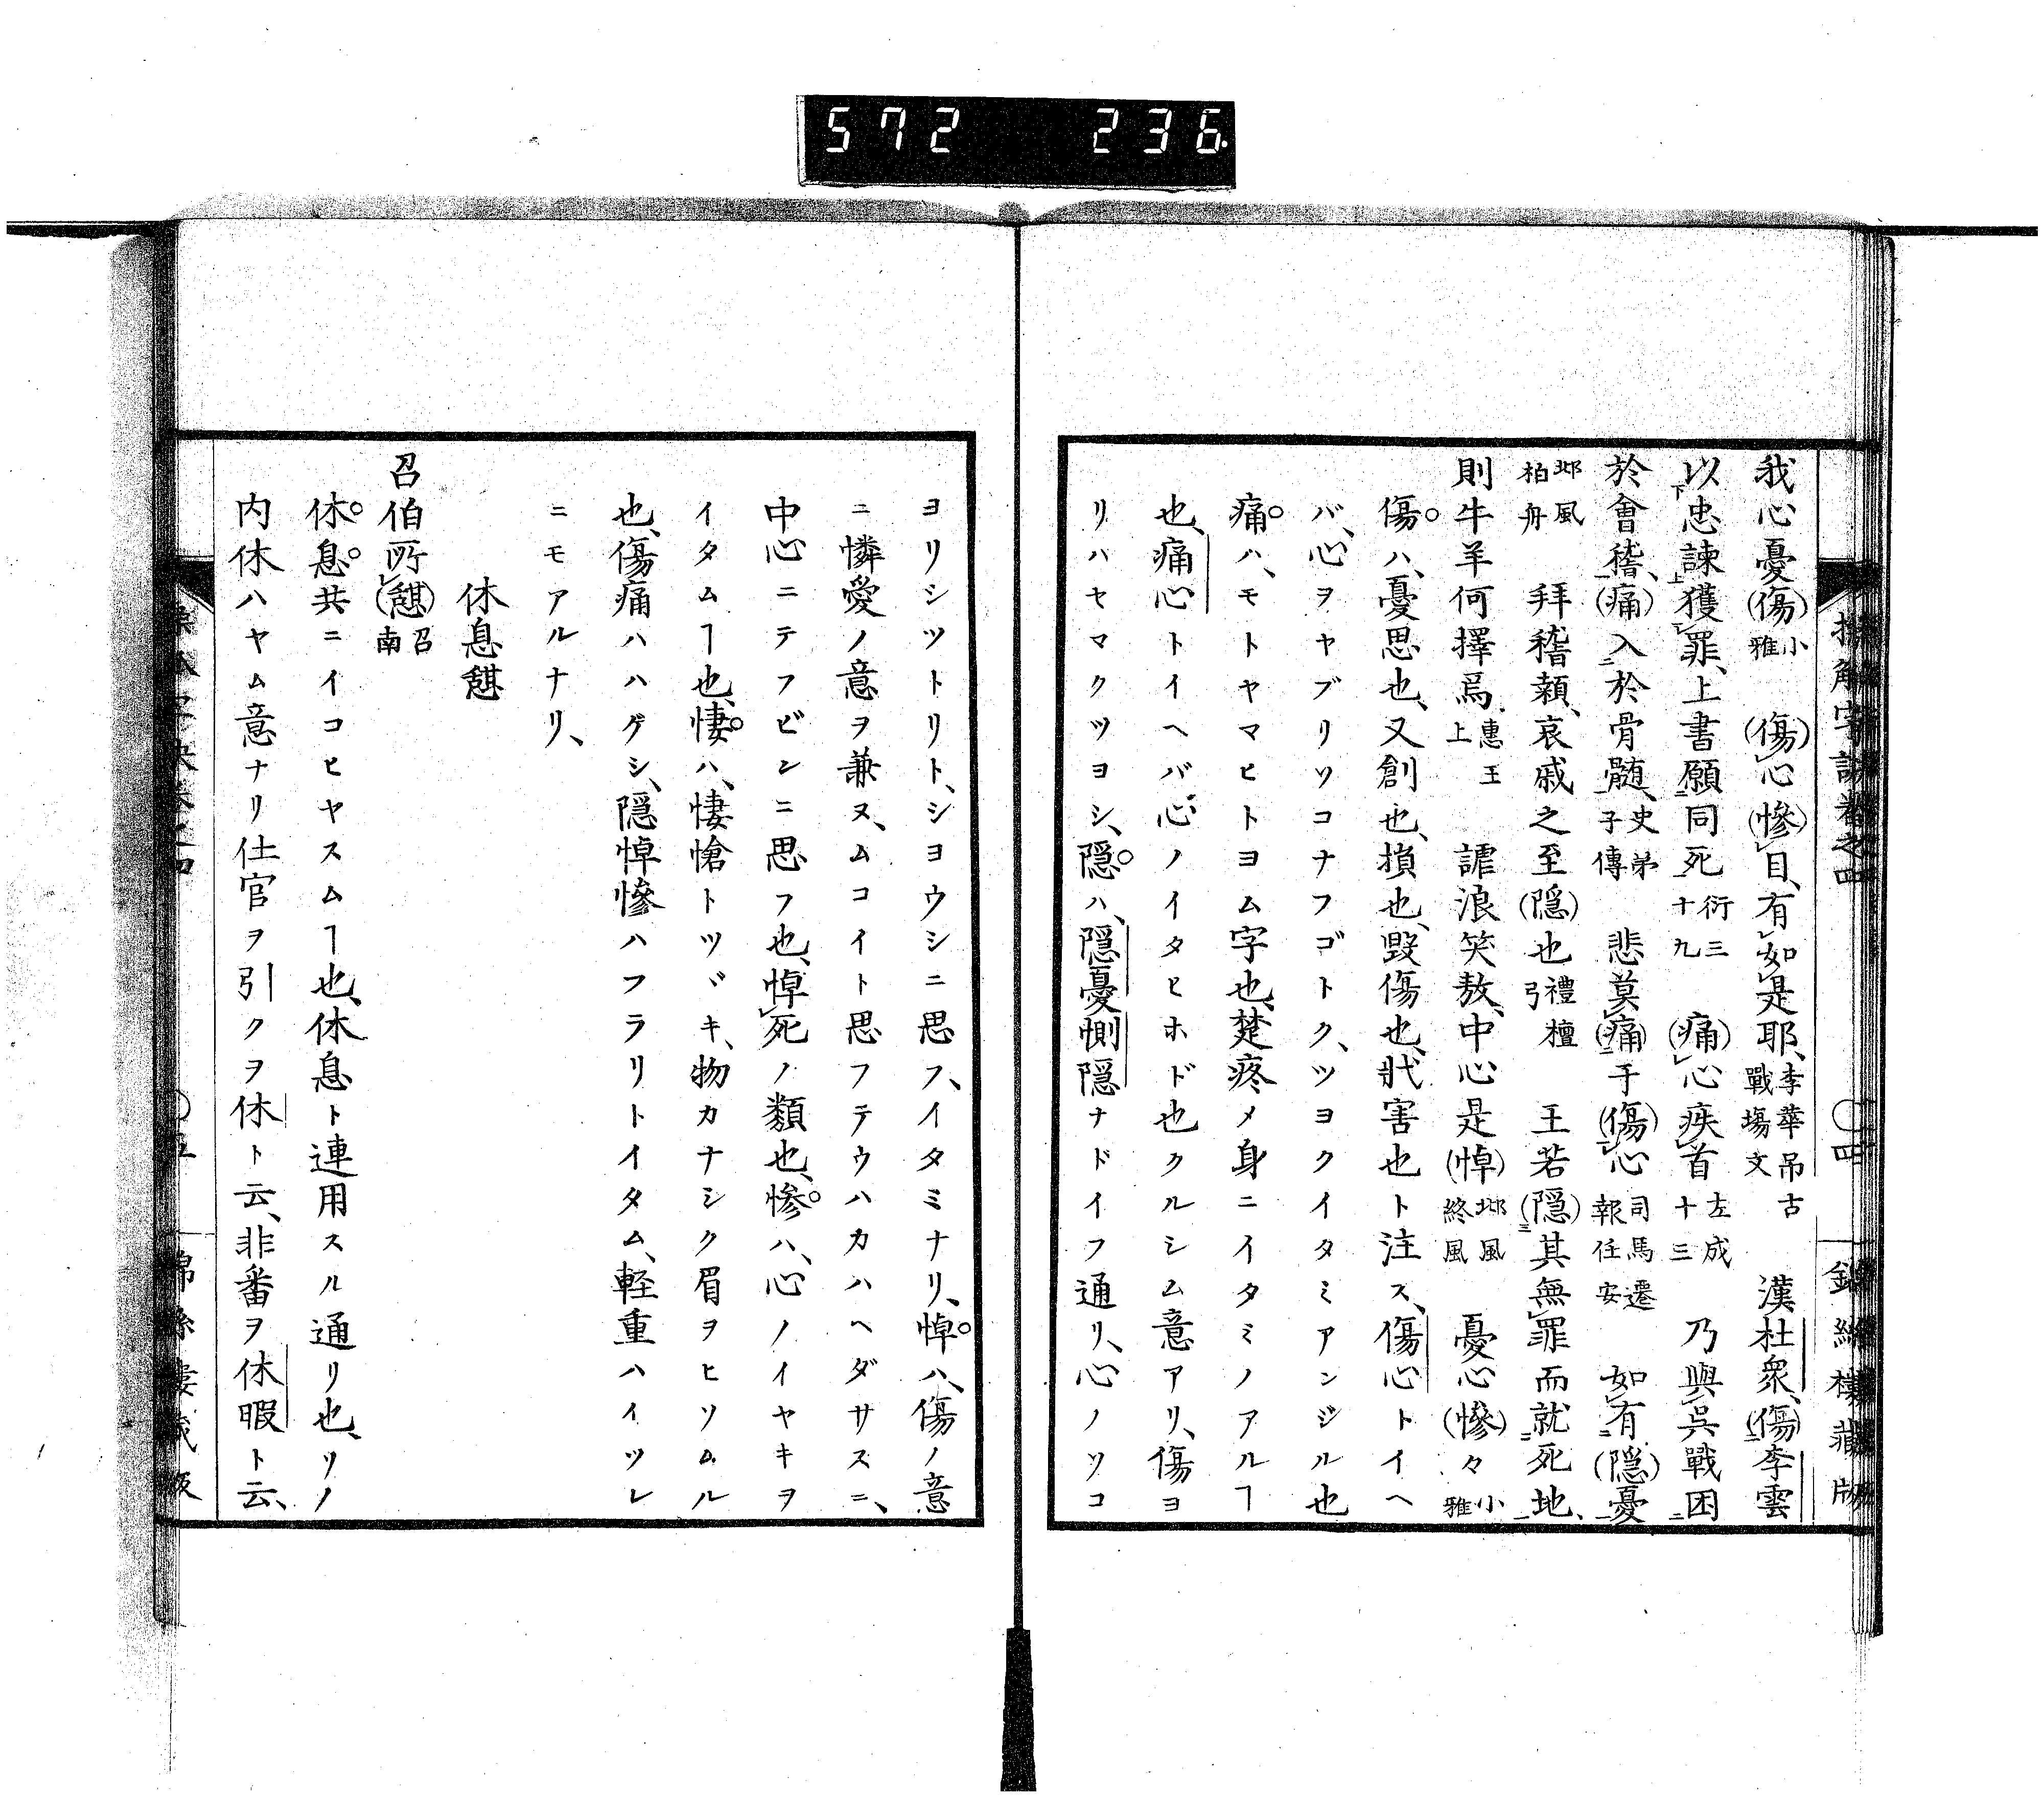 572 236
我心憂(傷)小雅 (傷)心(慘)目、有如是耶、李華吊古戰場文 漢杜衆、(傷)李雲
以忠諫獲罪、上書願同死衍三十九 (痛)心疾首左成十三 乃與吳戰困
於會稽、(痛)入於骨髄、史弟子傳 悲莫(痛)于(傷)心司馬遷報任安 如有(隠)憂
邶風柏舟 拜稽顙、哀戚之至(隠)也禮檀弓 王若(隠)其無罪而就死地、
則牛羊何擇焉、惠王上 謔浪笑敖、中心是(悼)邶風終風 憂心(慘)々小雅
傷ハ、憂思也、又創也、損也、毀傷也、戕害也ト注ス、傷心トイヘ
バ、心ヲヤブリソコナフゴトク、ツヨクイタミアンジル也
痛ハ、モトヤマヒトヨム字也、楚疼メ身ニイタミノアルヿ
也、痛心トイヘバ心ノイタヒホド也クルシム意アリ、傷ヨ
リハセマクツヨシ、隠ハ、隠憂惻隠ナドイフ通リ、心ノソコ
ヨリシツトリト、シヨウシニ思フ、イタミナリ、悼ハ、傷ノ意
ニ憐愛ノ意ヲ兼ヌ、ムコイト思フテウハカハヘダサスニ、
中心ニテフビンニ思フ也、悼死ノ類也、惨ハ、心ノイヤキヲ
イタムヿ也、悽ハ、悽愴トツヾキ、物カナシク眉ヲヒソムル
也、傷痛ハハゲシ、隠悼慘ハフラリトイタム、軽重ハイツレ
ニモアルナリ、
休息憩
召伯所(憩)召南
休息共ニイコヒヤスムヿ也、休息ト連用スル通リ也、ソノ
内休ハヤム意ナリ仕官ヲ引クヲ休ト云、非番ヲ休暇ト云、